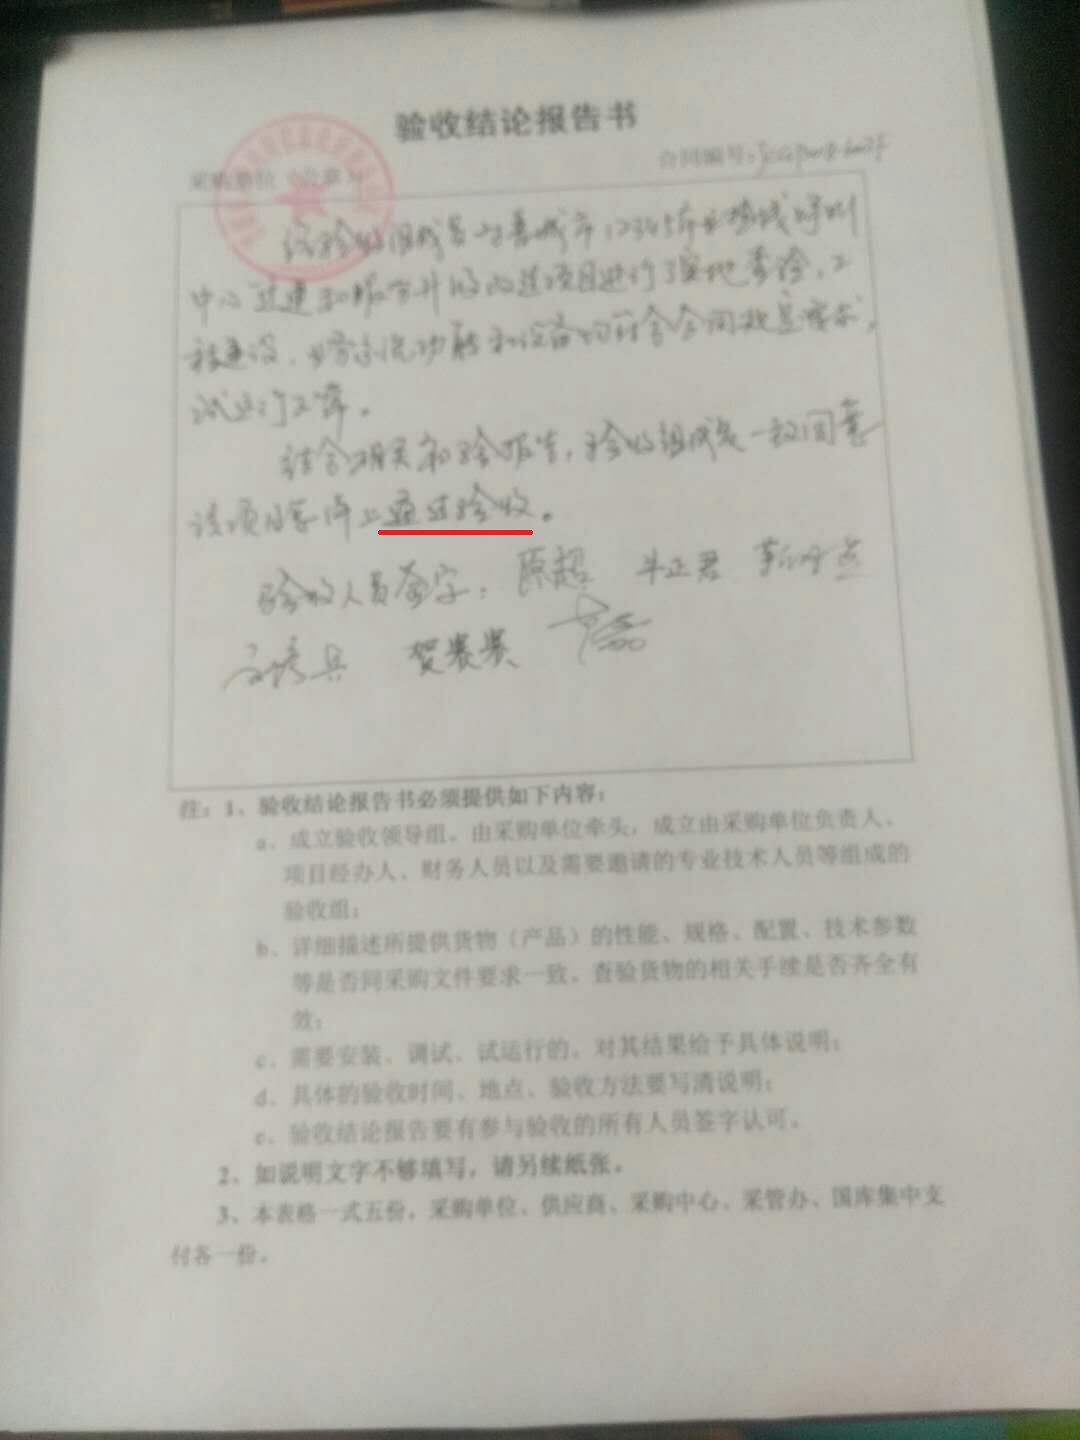 验收结论报告书
采购单位（公章）
合同编号：
经验收组成员对晋城市12345市长热线呼叫
中心改建和服务升级改造项目进行了实地查验，工
程建设、业务系统功能和设备均符合合同技术要求，
试运行正常。
结合相关初验报告，验收组成员一致同意
该项目整体上通过验收。
验收人员签字：原超 牛正君
贺赛赛
注：1、验收结论报告书必须提供如下内容：
a、成立验收领导组。由采购单位牵头，成立由采购单位负责人、
项目经办人、财务人员以及需要邀请的专业技术人员等组成的
验收组；
b、详细描述所提供货物（产品）的性能、规格、配置、技术参数
等是否同采购文件要求一致。查验货物的相关手续是否齐全有
效；
c、需要安装、调试、试运行的，对其结果给予具体说明；
d、具体的验收时间、地点、验收方法要写清说明；
e、验收结论报告要有参与验收的所有人员签字认可。
2、如说明文字不够填写，请另续纸张。
3、本表格一式五份，采购单位、供应商、采购中心、采管办、国库集中支
付各一份。